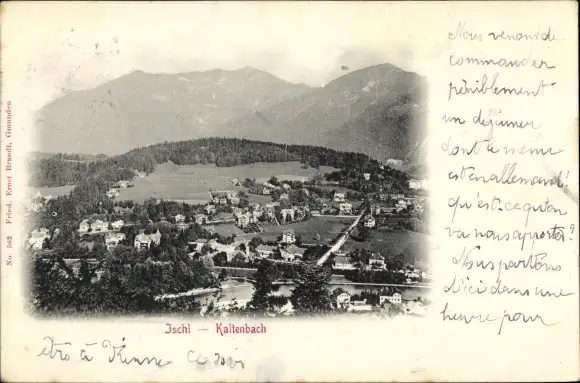 No. 562 Fried. Ernst Brandt, Gmunden
Nous venons de
commander
péniblement
un déjeuner
dont le menu
est en allemand!
qu'est-ce qu'on
va nous apporter?
Nous partons
d'ici dans une
heure pour
Ischl — Kaltenbach
être à Vienne Ce soir